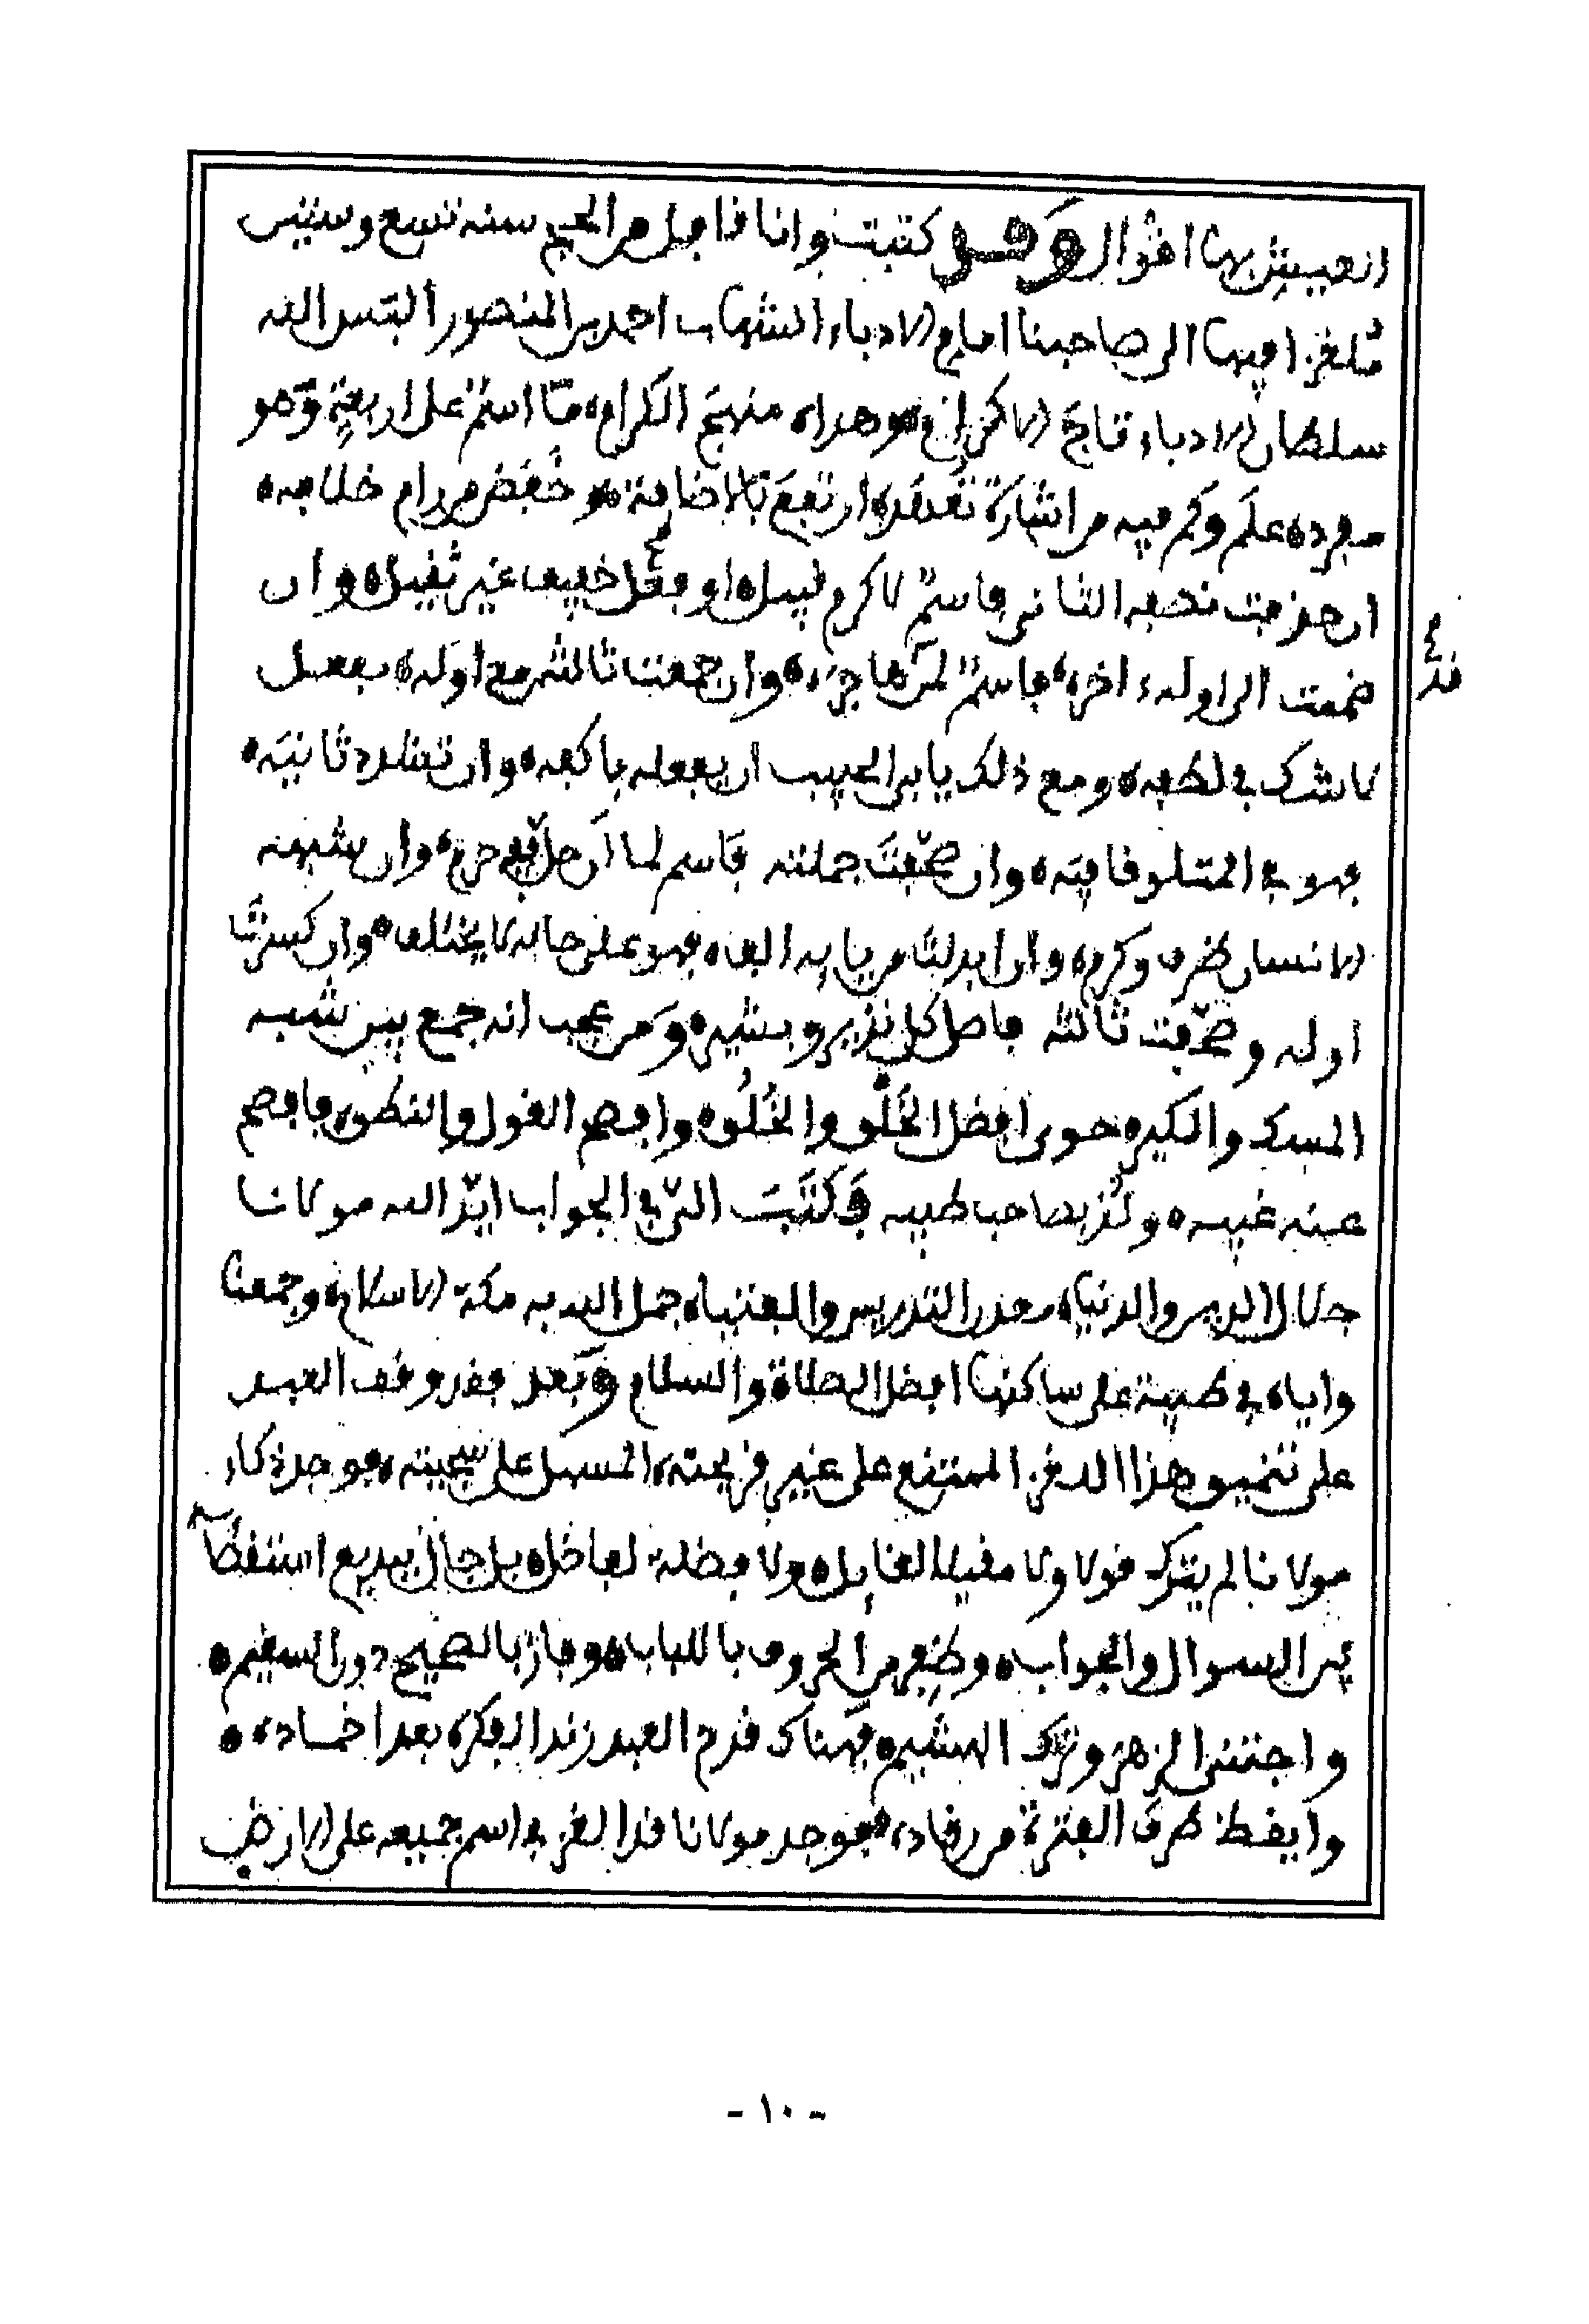 العيش بها اقوال وقد كتبت وانا قافل من الحج سنة تسع وستين
ملغزا فيها الى صاحبنا امام الادباء الشهاب احمد بن المنصور البس الله
سلطان الادباء تاج الاكرام وهداه منهج الكرام ما اسم على اربعة وهو
مفرده علم وكم فيه من اشارة تفقده ارتفع بالاضافة وخفض من رام خلافه
ان حذفت نصفه الثاني فاسم لاكرم قبيل او فعل خفيف غير ثقيل وان
ضممت الى اوله اخره فاسم لمن هاجره وان جمعت ثالثه مع اوله بفعل
لا شك في لطفه ومع ذلك يابى الحبيب ان يفعله باكفه وان تشدد ثانيه
فهو في المتلو قافيته وان صحفت جملته فاسم لما ان حل فيه حرم وان شبهته
الانسان طرف وكرم وان ابدلت من يايه الف فهو على حاله لا يختلف وان كسرت
اوله وصحفت ثالثه فاصل كل نذير وبشير ومن عجب انه جمع بين شبه
المسك والكير حوى افضل الخلق والخلق وافصح القول والنطق فافصح
عنه غيبه ولذ بصاحب طيبه فكتب الي في الجواب ايد الله مولانا
جلال الدين والدنيا معدن التدريس والفتيا جمل الله به مكة الاسلام وجمعنا
واياه في طيبة على ساكنها افضل الصلاة والسلام وبعد فقد وقف العبد
على تنميق هذا اللغز الممتنع على غير قريحته المسهل على سجيته فوجد ذكاء
مولانا لم يترك قولا ولا مقيلا لقايل ولا فضلة لفاضل بل جال ببديع استنقطا
بين السوال والجواب وظفر من الحروف باللباب وفاز بالصحيح دون السقيم
واجتنى الزهر وترك الهشيم فهناك قدح العبد زند الفكرة بعد اخماده
وايقظ طرف الفترة من رقاده فوجد مولانا قد الغز في اسم جميعه على الارض
قد
- ١٠ -